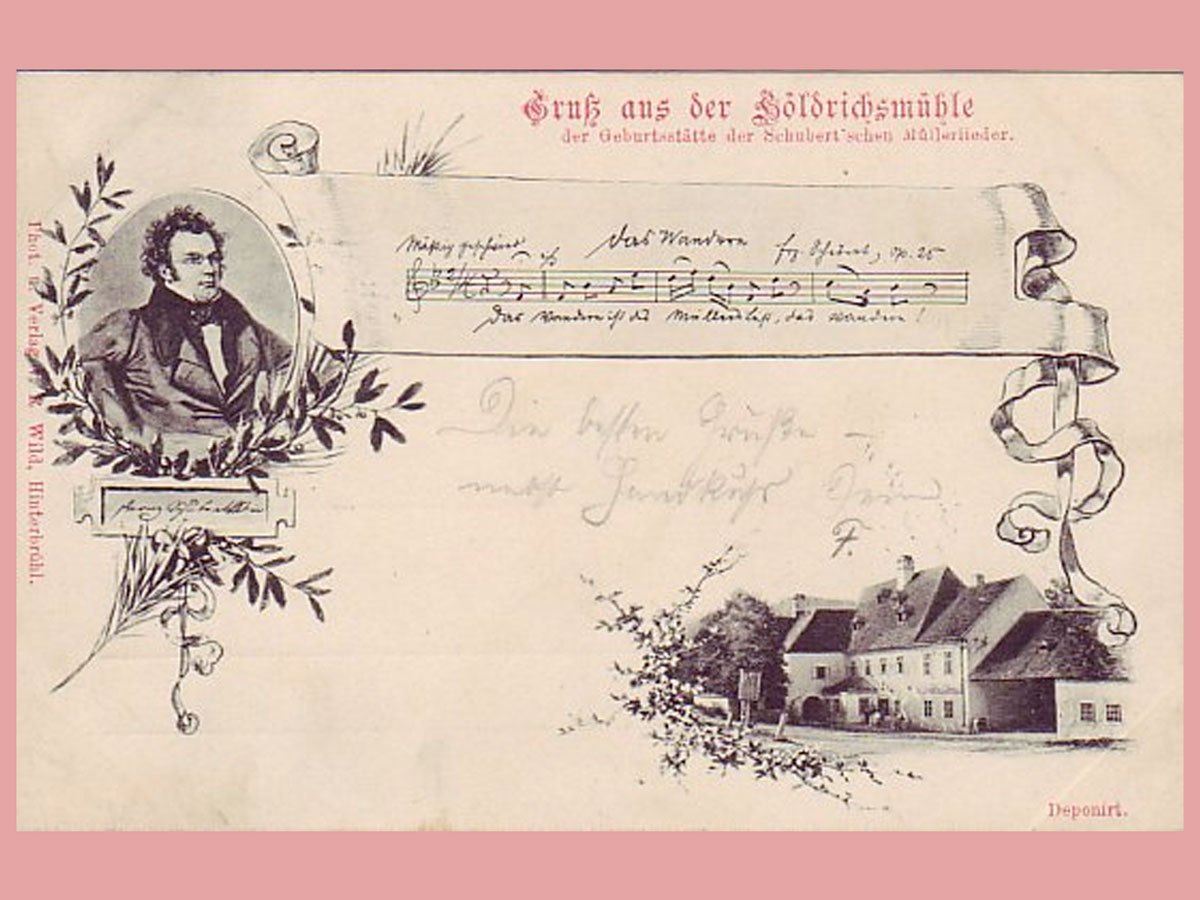 Gruß aus der Höldrichsmühle
der Geburtsstätte der Schubert'schen Müllerlieder.
Mäßig geschwind
Das Wandern
Frz. Schubert, Op. 25
Das Wandern ist des Müllers Lust, das Wandern!
Die besten Grüße –
nebst Handkuss
F.
Phot. u. Verlag Wild, Hinterbrühl.
Deponirt.